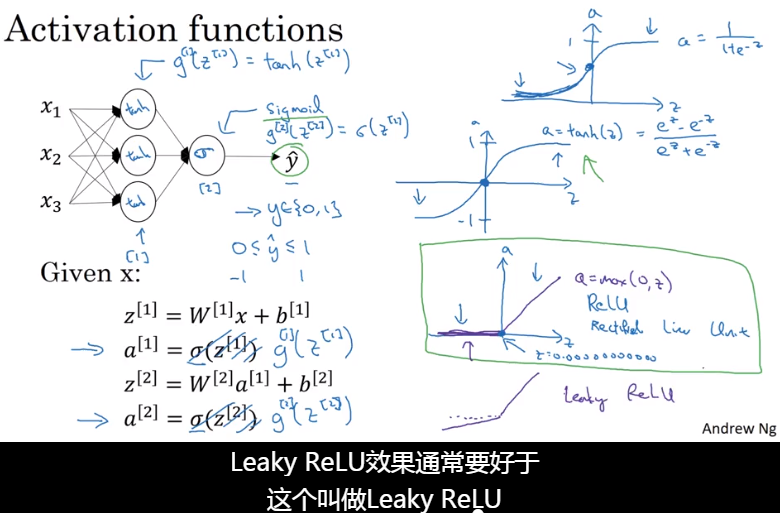 Activation functions
g^[1](z^[1]) = tanh(z^[1])
x₁
x₂
x₃
tanh
tanh
tanh
σ
[1]
[2]
sigmoid
g^[2](z^[2]) = σ(z^[2])
ŷ
→ y∈{0,1}
0 ≤ ŷ ≤ 1
-1 1
Given x:
z^[1] = W^[1]x + b^[1]
→ a^[1] = σ(z^[1]) g^[1](z^[1])
z^[2] = W^[2]a^[1] + b^[2]
→ a^[2] = σ(z^[2]) g^[2](z^[2])
a
1
z
a = 1/(1+e^-z)
a
1
-1
z
a = tanh(z) = (e^z - e^-z)/(e^z + e^-z)
a
z
a = max(0,z)
ReLU
Rectified Linear Unit
z=0.00000000000
Leaky ReLU
Andrew Ng
Leaky ReLU效果通常要好于
这个叫做Leaky ReLU